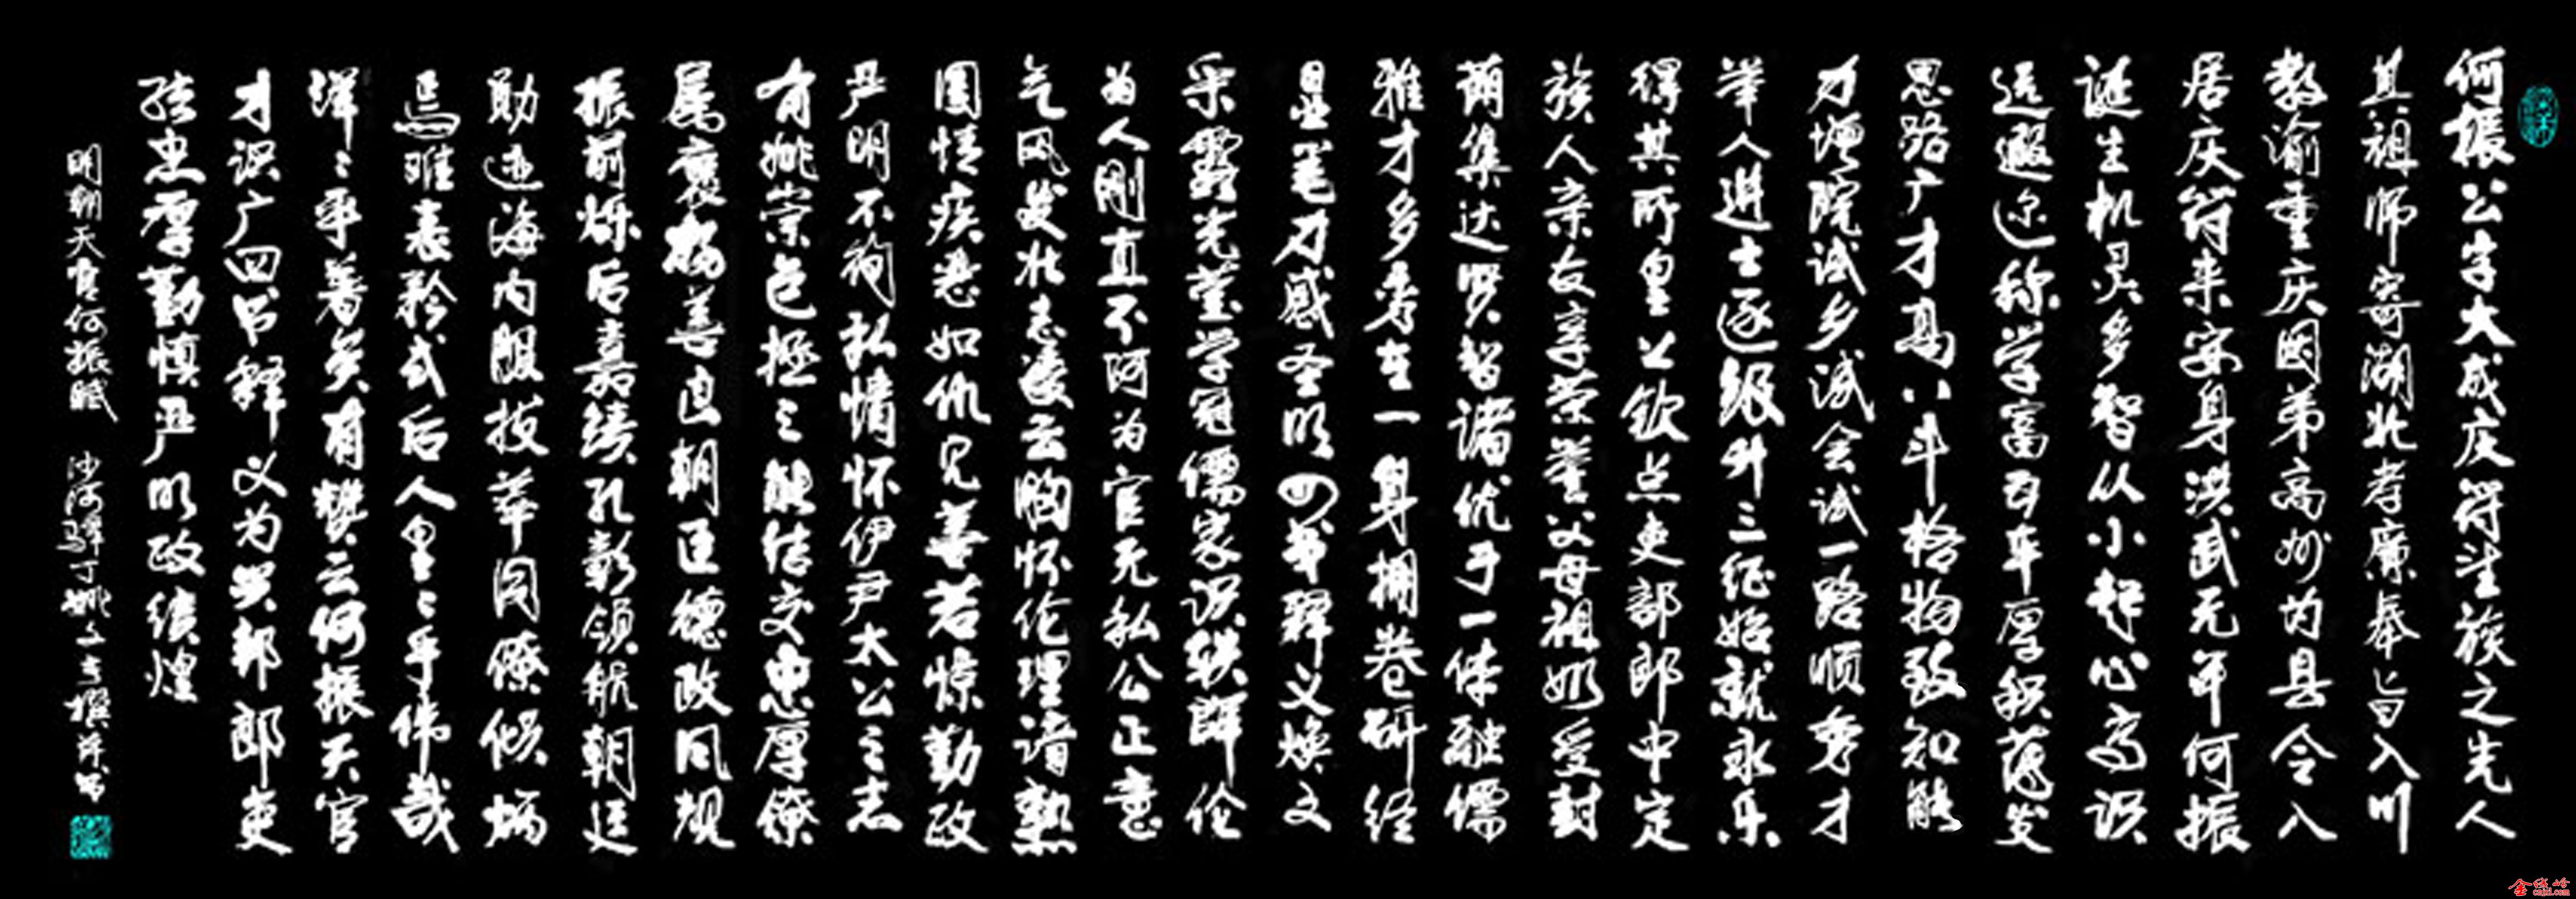 何振公字大成庆符望族之先人
其祖师寄湖北孝廉奉旨入川
教谕重庆因弟高州为县令八
居庆符来安身洪武元年何振
诞生机灵多智从小起心高识
远遐迩称学富五车厚积薄发
思路广才高八斗格物致知能
力增院试乡试会试一路顺秀才
举人进士逐级升三征始就永乐
得其所皇上钦点吏部郎中定
族人亲友享荣誉父母祖妣受封
荫集达贤智诸优于一体融儒
雅才多秀在一身拥卷研经
显笔力感圣明四书释义焕文
采露光莹学冠儒家识轶群伦
为人刚直不阿为官无私公正意
气风发壮志凌云胸怀伦理谙熟
国情疾恶如仇见善若惊勤政
严明不徇私情怀伊尹太公之志
有姚崇包拯之能结交忠厚僚
属褒扬善良朝臣德政风规
振前烁后嘉绩孔彰领航朝廷
勋迹海内服拔萃同僚倾炳
焉唯表矜式后人皇皇乎伟哉
煌煌乎著矣有赞云何振天官
才识广四书释义为兴邦郎吏
临忠厚勤慎严明政绩煌
明朝天官何振赋 沙河驿丁姚文言撰并书
金线岭